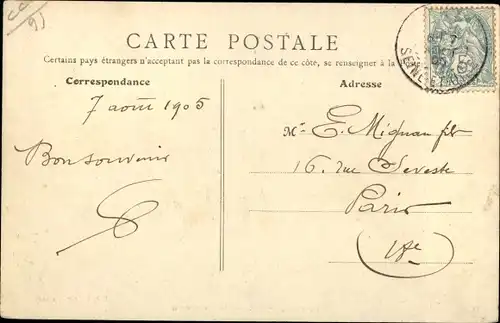 CARTE POSTALE
Certains pays étrangers n'acceptant pas la correspondance de ce côté, se renseigner à la
Correspondance
Adresse
7 août 1905
Bon souvenir
Mr E. Mignan fils
16, rue Seveste
Paris
SEINE-ET-OISE